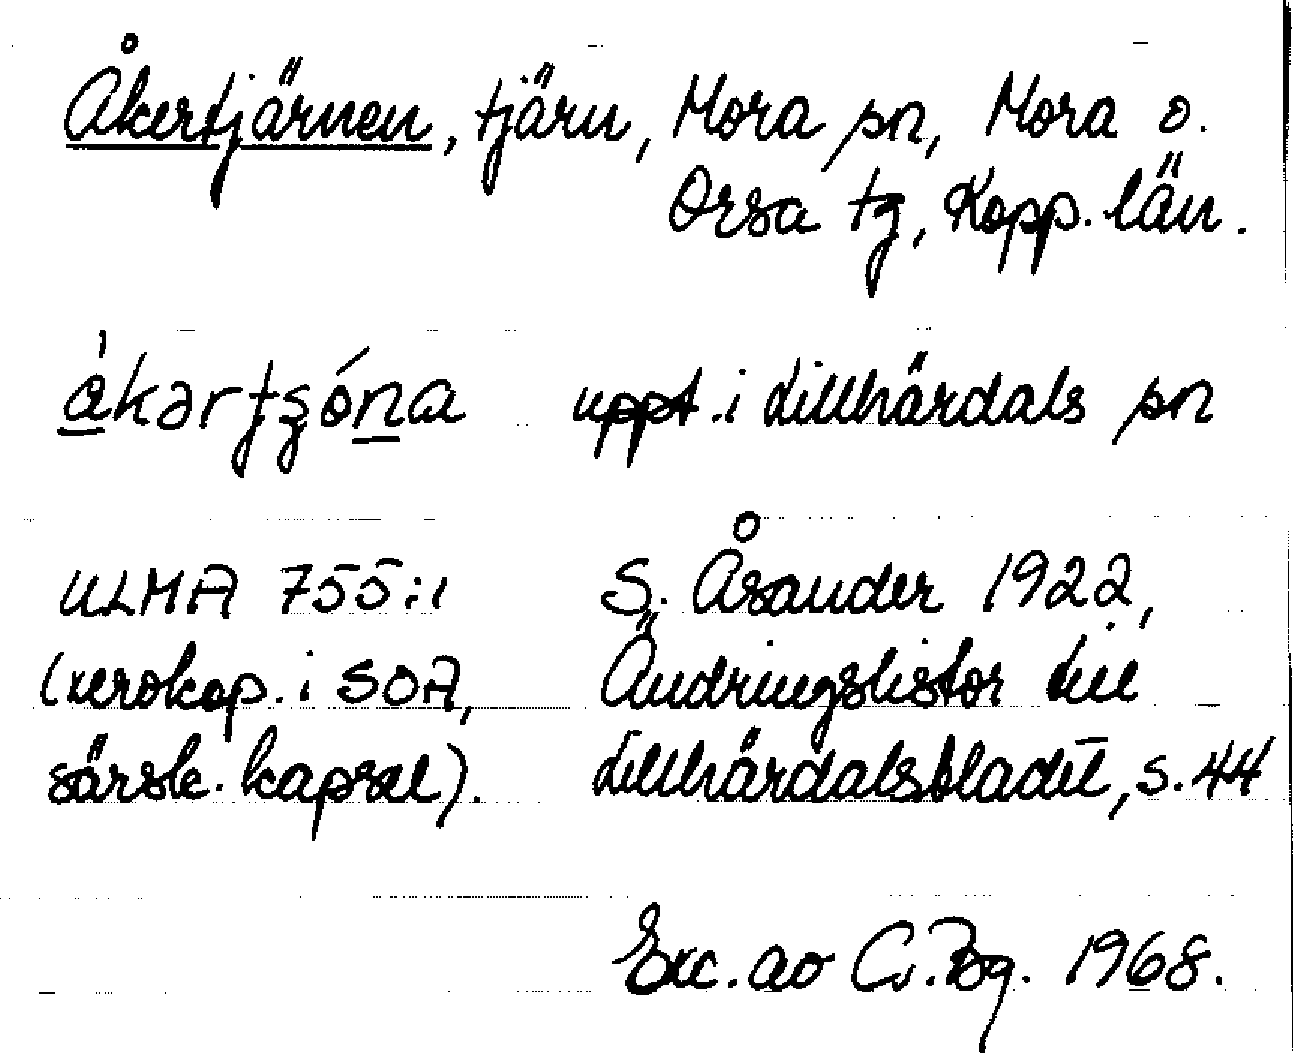 Åkertjärnen, tjärn, Mora sn, Mora o.
Orsa tg, Kopp. län.
uppt. i Lillhärdals sn
ULMA 755:1 S. Åsander 1922,
(xerokop. i SOA, Ändringslistor till
särsk. kapsel). Lillhärdalsbladet, s. 44
Exc. av C. Bg. 1968.